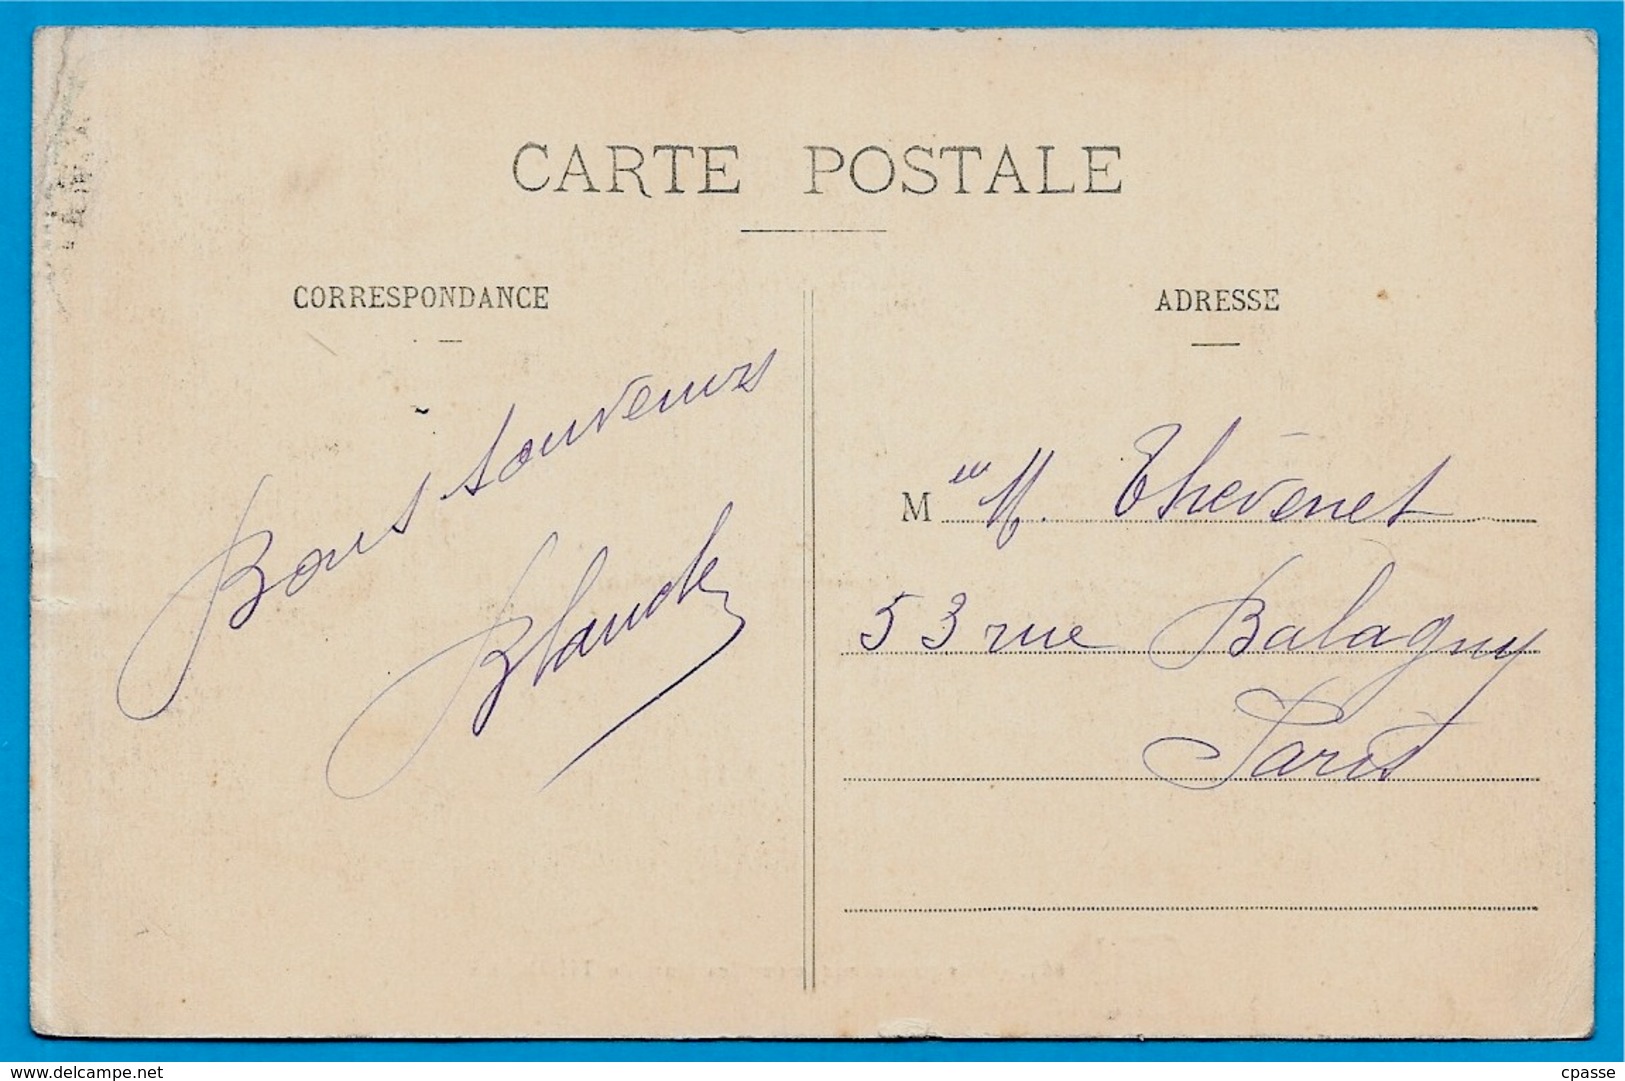 CARTE POSTALE
CORRESPONDANCE
Bons souvenirs
Blanche
ADRESSE
M M. Thévenet
53 rue Balagny
Paris
delcampe.net
cpasse